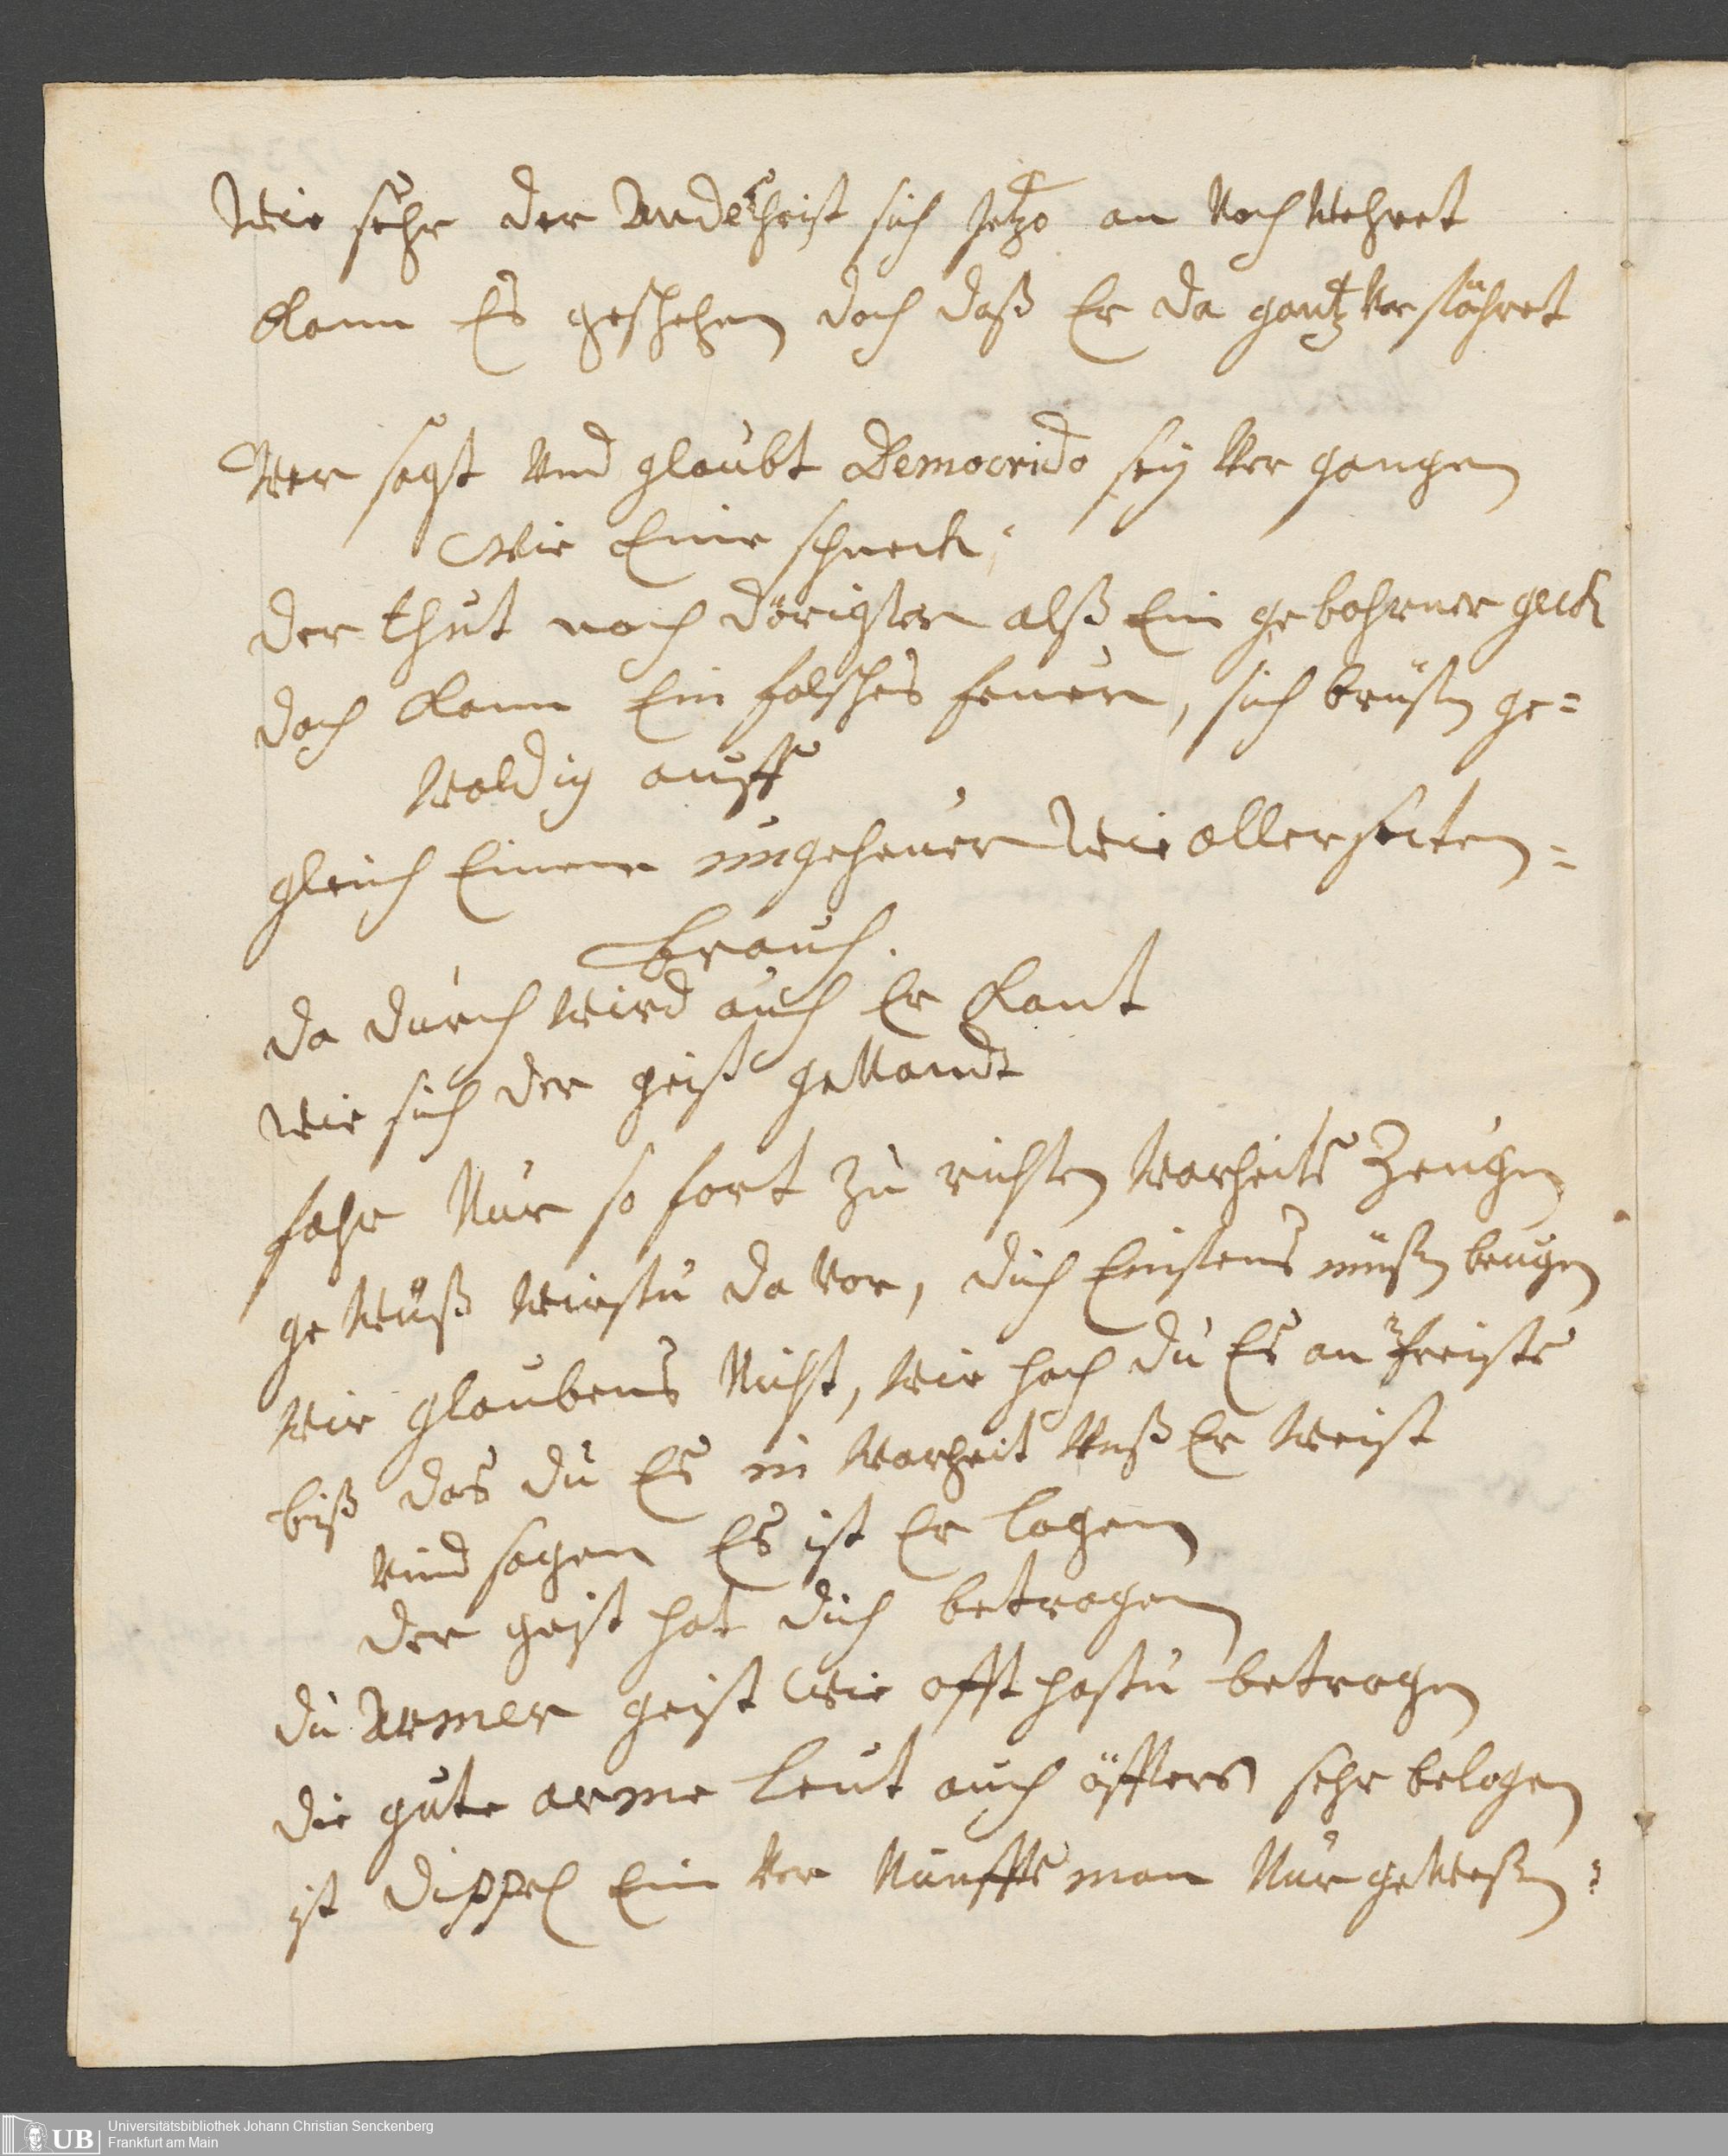 Wie sehr der Andechrist sich Jetzo an Noch Wehret
Kann Es geschehen doch daß Er da gantz Ver stöhret
Wer sagt Und glaubt Democrido sey Ver gangen
Wie Eine schneck;
der thut noch dörigter alß Ein gebohrner geck
doch Kann Ein falsches feuer, sich brüsten ge=
Waldig auff
gleich Einem ungeheuer Wie allerseiten=
brauch.
da durch Wird auch Er Kant
Wie sich der geist gewandt
fahr Nur so fort zu richten Warheits Zeugen
ge Wüß Wirstu da Vor, dich Einstens müßen beugen
Wir glaubens Nicht, Wie hoch du Es an
biß das du Es in Warheit Unß Er Weist
Und sagen Es ist Er logen
der geist hat dich betrogen
du Armer geist Wie offt hastu betrogen
die gute arme Leut auch öffters sehr belogen
ist Dippel Ein Ver Nunffts man Nur geweßen
Universitätsbibliothek Johann Christian Senckenberg
Frankfurt am Main
UB